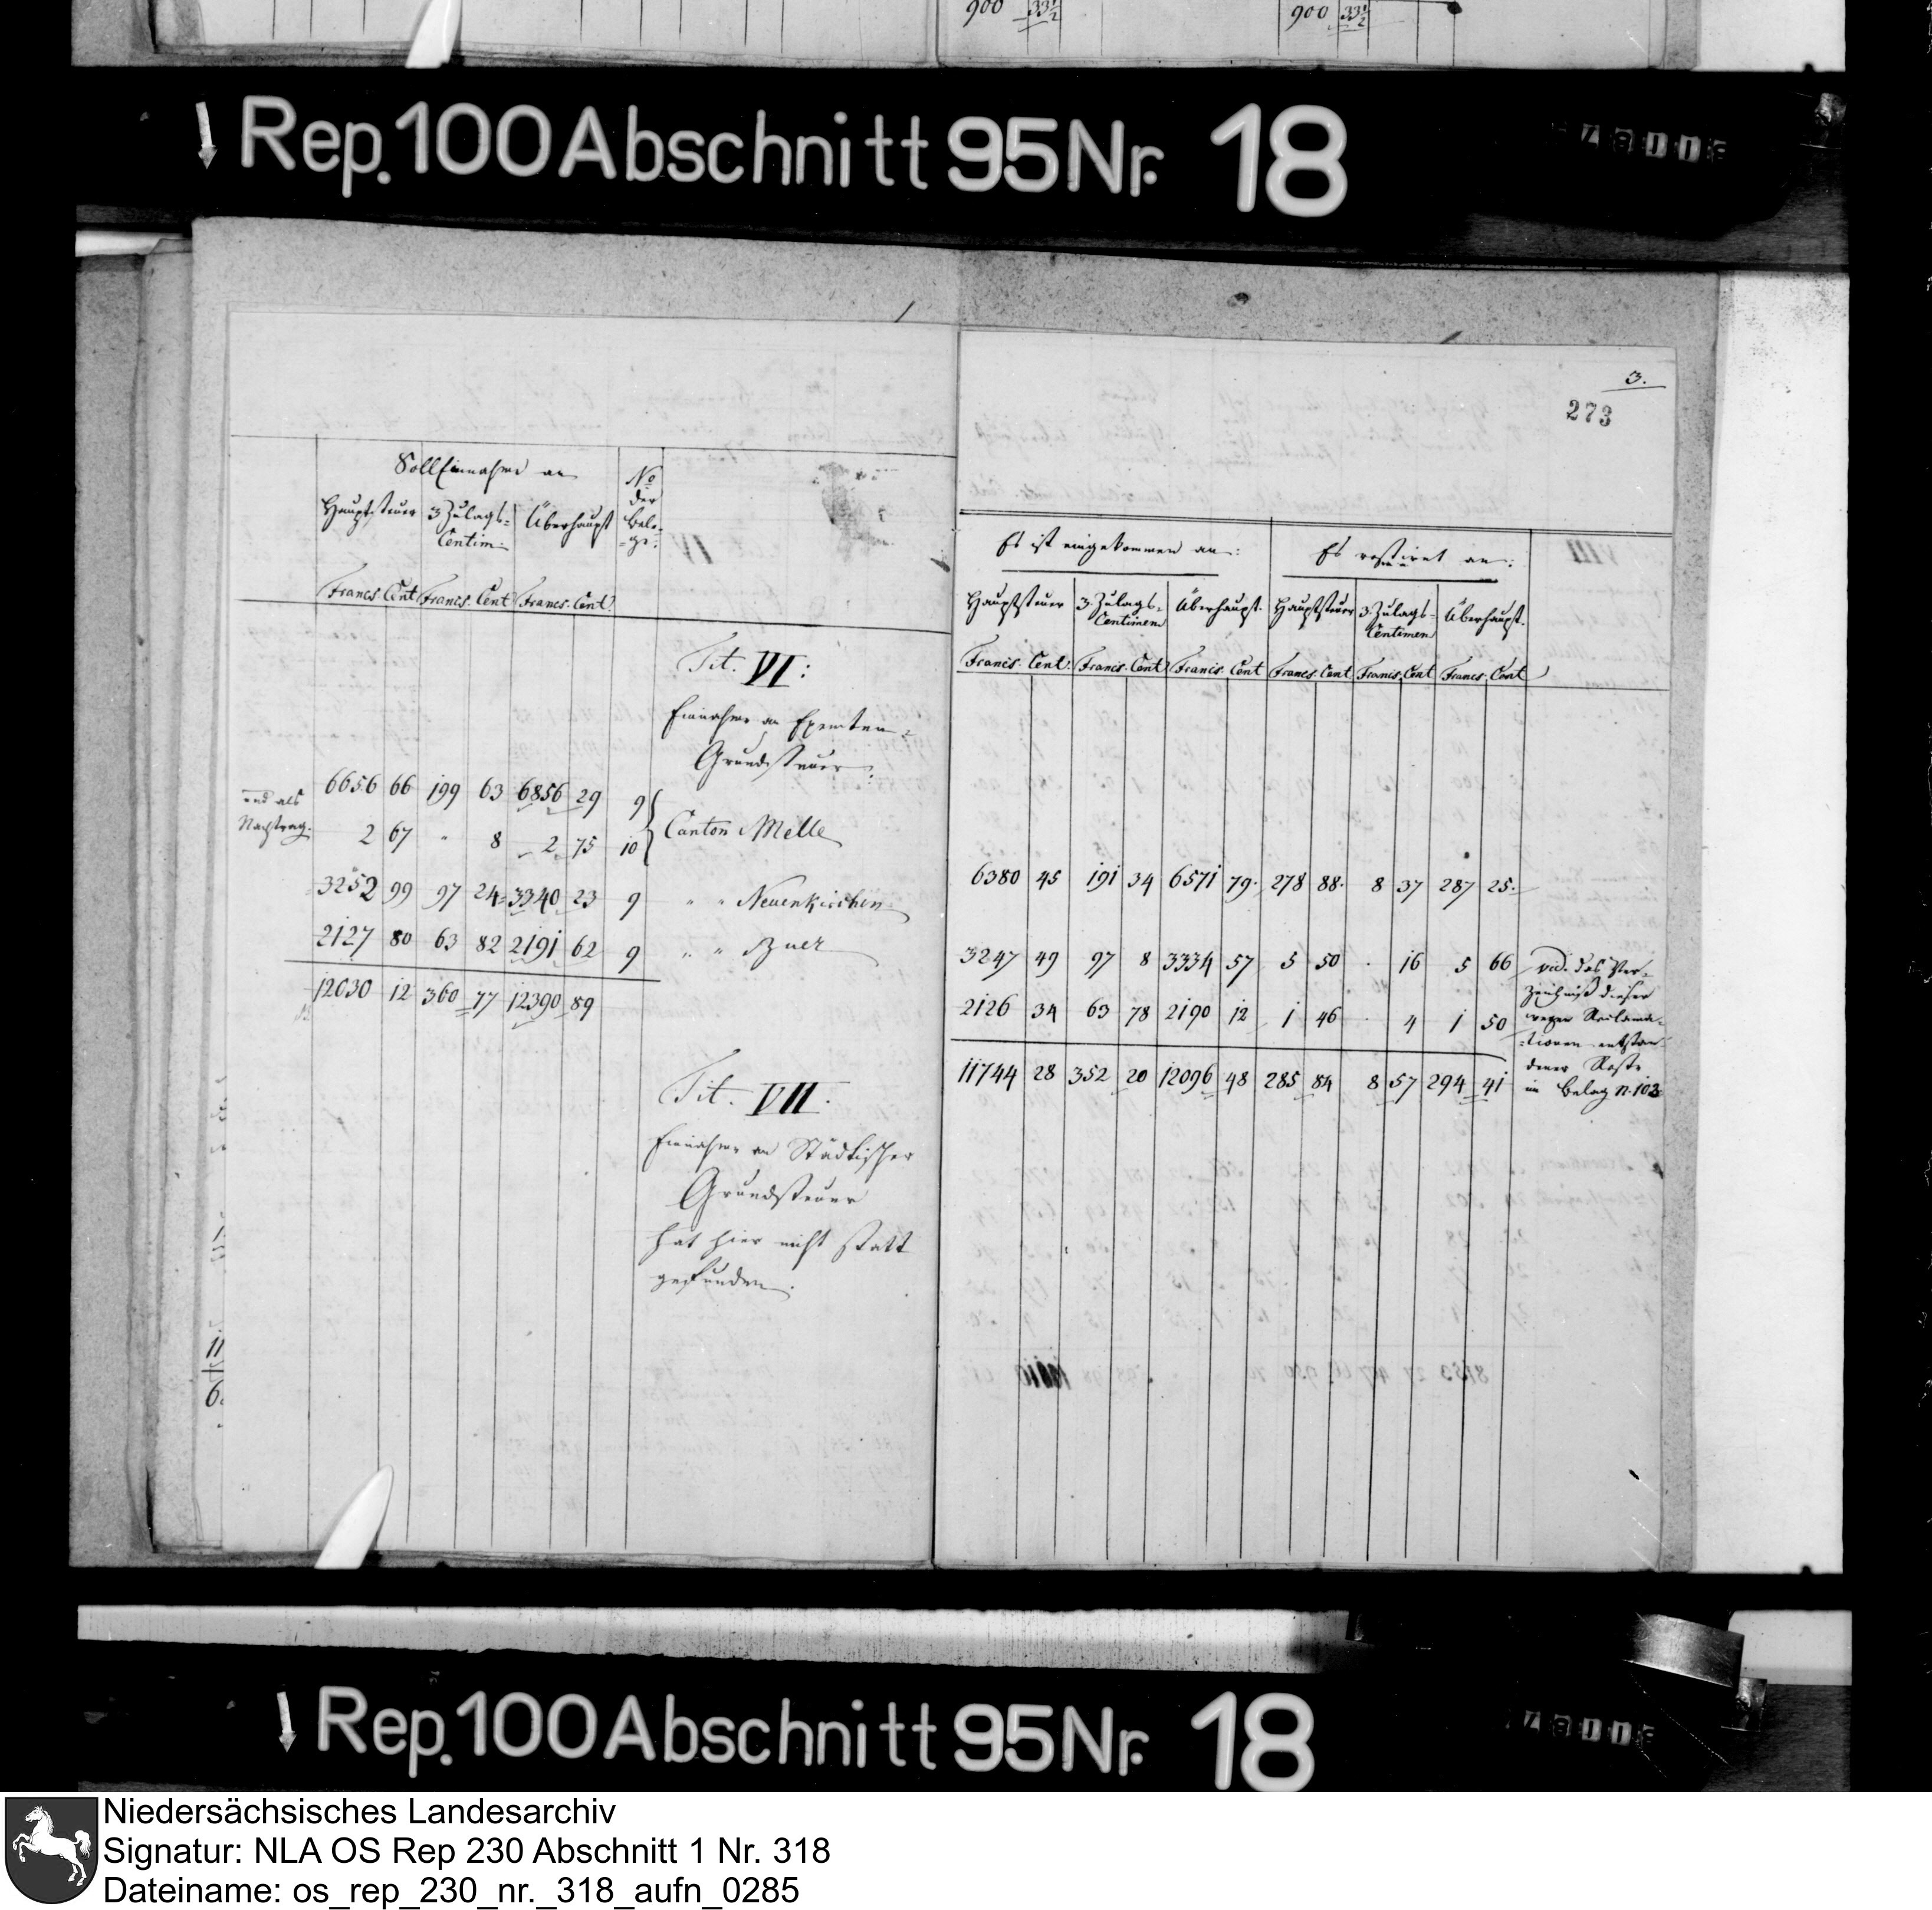 900 33 1/2 900 33 1/2
Rep. 100 Abschnitt 95 Nr. 18
3.
273
SollEinnahme an
Hauptsteuer 3 Zulags- Centim: Überhaupt
No der Bele- ge:
Francs. Cent Francs. Cent Francs. Cent
Tit. VI:
Einnahme an Exemten-
Grundsteuer:
6656 66 199 63 6856 29 9
und als
Nachtrag. 2 67 " 8 2 75 10
Canton Melle
3252 99 97 24 3340 23 9 " " Neuenkirchen
2127 80 63 82 2191 62 9 " " Buer
12030 12 360 77 12390 89
Tit. VII.
Einnahme an Städtischer
Grundsteuer
hat hier nicht statt
gefunden.
Es ist eingekommen an: Es restiret an:
Hauptsteuer 3. Zulags- Centimen Überhaupt. Hauptsteuer 3. Zulags- Centimen Überhaupt.
Francs. Cent. Francs. Cent Francs. Cent Francs. Cent Francs. Cent Francs. Cent
6380 45 191 34 6571 79. 278 88. 8 37 287 25.
3247 49 97 8 3334 57 5 50 . 16 5 66
2126 34 63 78 2190 12 1 46 . 4 1 50
11744 28 352 20 12096 48 285 84 8 57 294 41
vid. das Ver-
zeichniß dieser
wegen Reclama-
tionen entstan-
dener Reste
im Belag n. 103
Rep. 100 Abschnitt 95 Nr. 18
Niedersächsisches Landesarchiv
Signatur: NLA OS Rep 230 Abschnitt 1 Nr. 318
Dateiname: os_rep_230_nr._318_aufn_0285